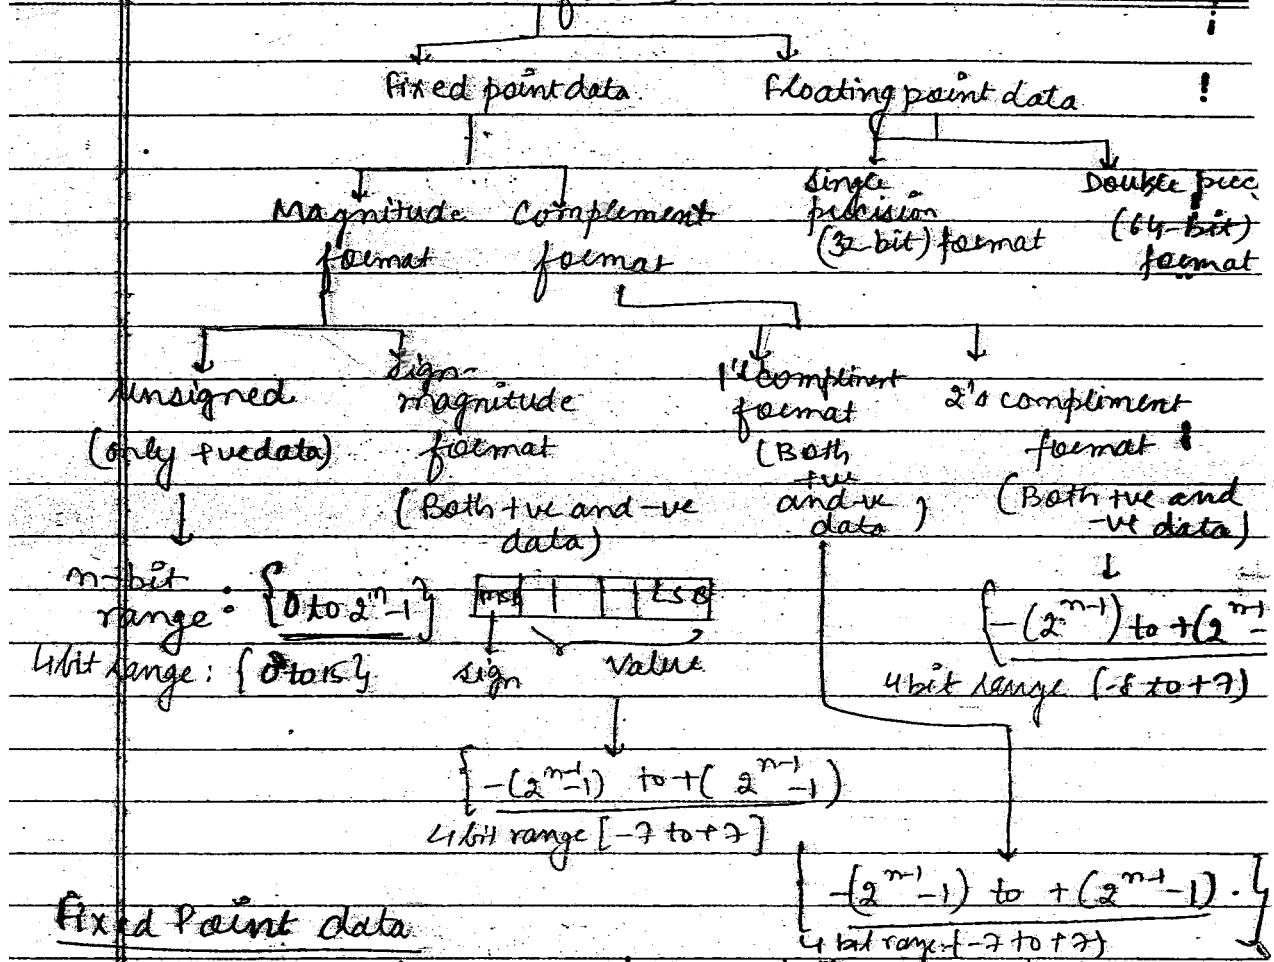 Fixed point data
Floating point data
Magnitude format
Complement format
Single precision (32-bit) format
Double prec. (64-bit) format
Unsigned
(only +ve data)
Sign-magnitude format
(Both +ve and -ve data)
1's compliment format
(Both +ve and -ve data)
2's compliment format
(Both +ve and -ve data)
n-bit range: {0 to 2^n-1}
4bit range: {0 to 15}
MSB LSB
sign value
{-(2^n-1) to +(2^n-1 -
4 bit range (-8 to +7)
{-(2^n-1 -1) to +(2^n-1 -1)
4 bit range [-7 to +7]
{-(2^n-1 -1) to +(2^n-1 -1).}
4 bit range: (-7 to +7)
Fixed Point data